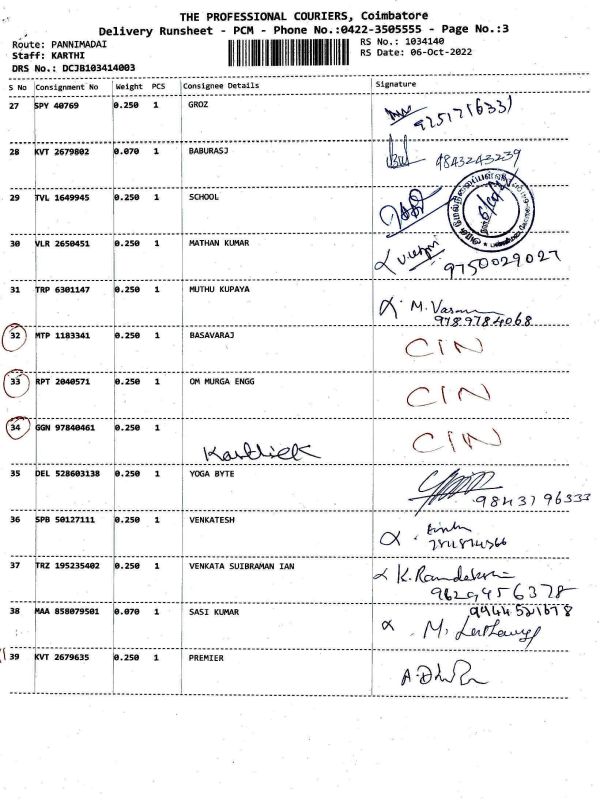 THE PROFESSIONAL COURIERS, Coimbatore
Delivery Runsheet - PCM - Phone No.:0422-3505555 - Page No.:3
Route: PANNIMADAI
Staff: KARTHI
DRS No.: DCJB103414003
RS No.: 1034140
RS Date: 06-Oct-2022
S No Consignment No Weight PCS Consignee Details Signature
27 SPY 40769 0.250 1 GROZ
28 KVT 2679802 0.070 1 BABURASJ 9843243239
29 TVL 1649945 0.250 1 SCHOOL
30 VLR 2650451 0.250 1 MATHAN KUMAR 9750029027
31 TRP 6301147 0.250 1 MUTHU KUPAYA M. Vasan
9789784068
32 MTP 1183341 0.250 1 BASAVARAJ CIN
33 RPT 2040571 0.250 1 OM MURGA ENGG CIN
34 GGN 97840461 0.250 1 Karthick CIN
35 DEL 528603138 0.250 1 YOGA BYTE 9843796333
36 SPB 50127111 0.250 1 VENKATESH
37 TRZ 195235402 0.250 1 VENKATA SUIBRAMAN IAN
9629456378
38 MAA 858079501 0.070 1 SASI KUMAR 9944521678
39 KVT 2679635 0.250 1 PREMIER